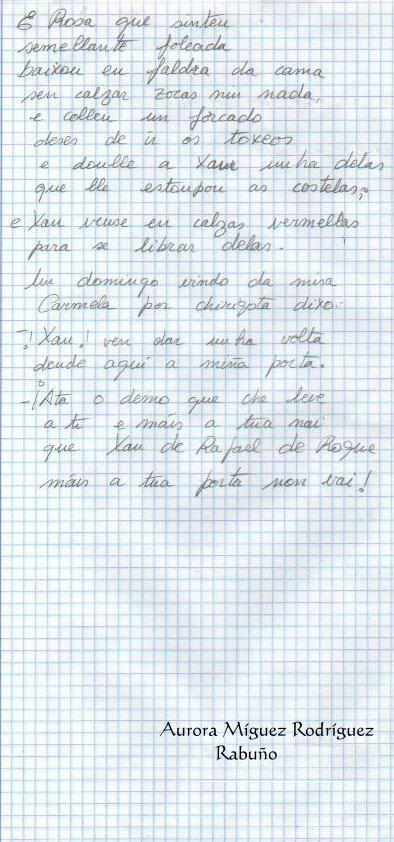 E Rosa que sinteu
semellante foleada
baixou en faldra da cama
sen calzar zocas nin nada,
e colleu un forcado
deses de ir os toxeos
e doulle a Xan unha delas
que lle estoupou as costelas;
e Xan veuse en calzas vermellas
para se librar delas.
Un domingo vindo da misa
Carmela por chirigota dixo:
-¡Xan! ven dar unha volta
dende aquí a miña porta.
-¡Ata o demo que che leve
a ti e máis a túa nai
que Xan de Rafael de Roque
máis a túa porta non vai!
Aurora Míguez Rodríguez
Rabuño